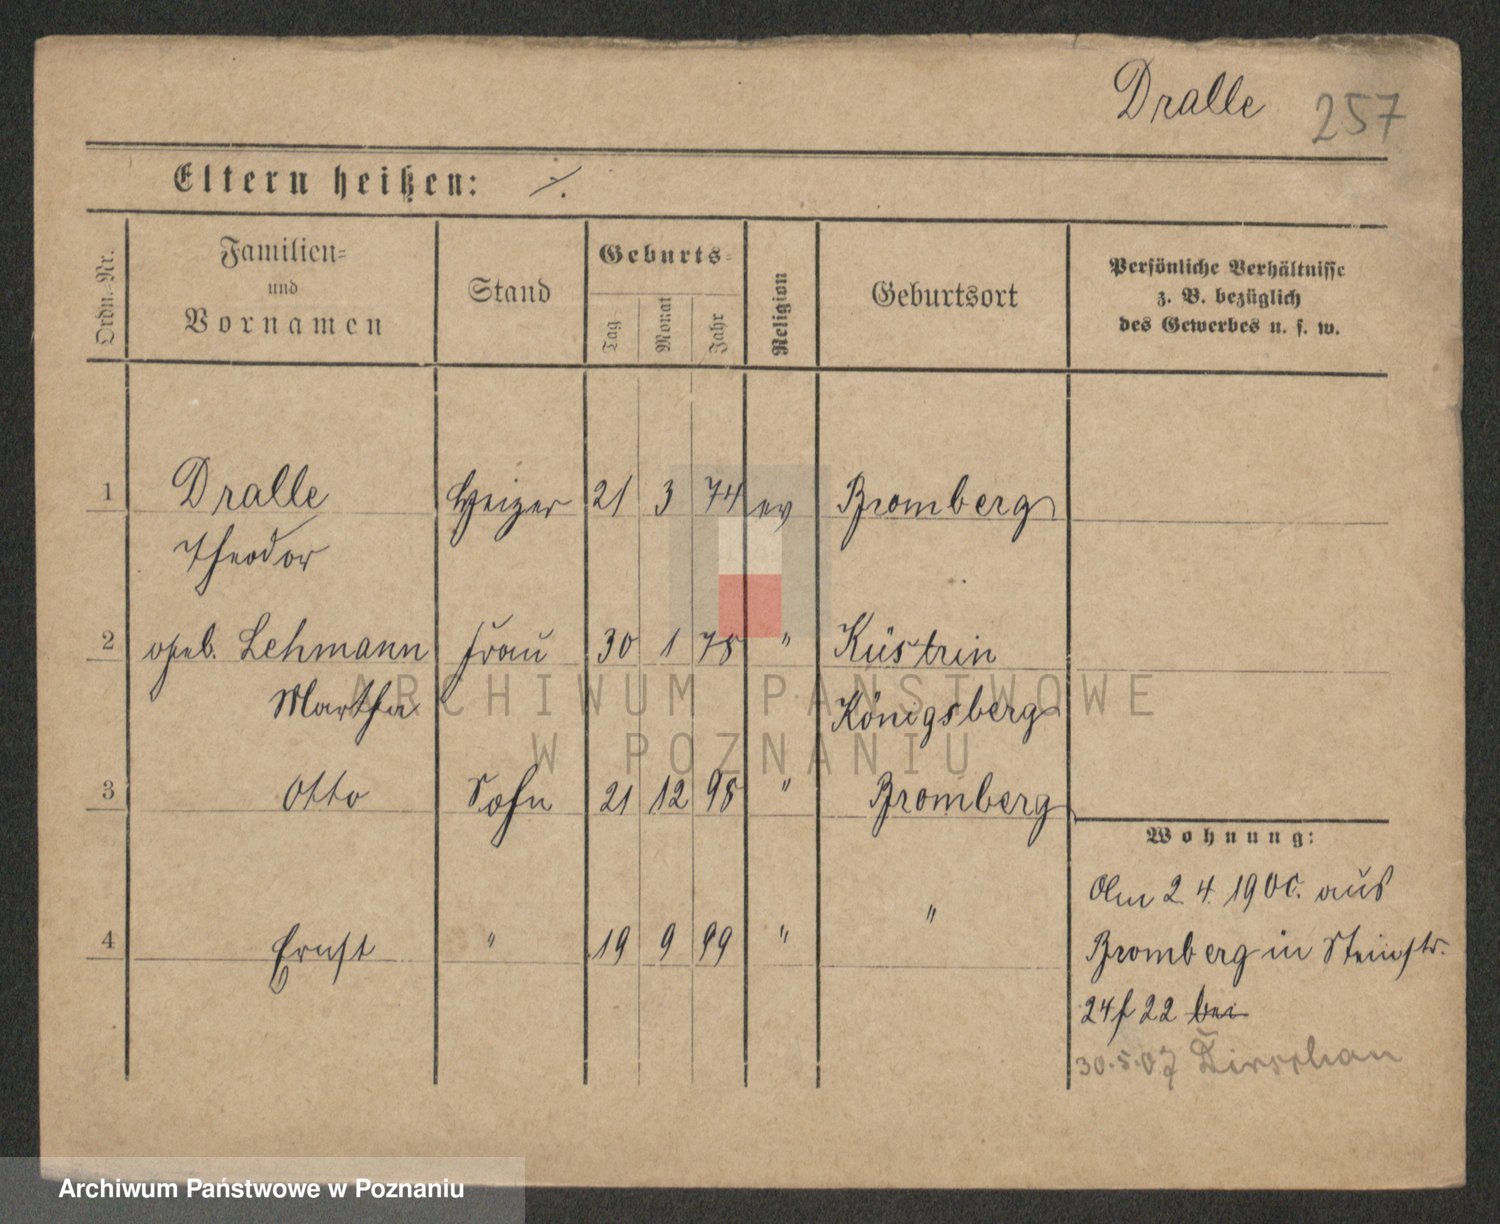 Dralle 257
Eltern heißen: ·/.
Ordn.-Nr.
Familien-
und
Vornamen
Stand
Geburts-
Tag
Monat
Jahr
Religion
Geburtsort
Persönliche Verhältnisse
z. B. bezüglich
des Gewerbes u. s. w.
1 Dralle Heizer 21 3 74 ev Bromberg
Theodor
2 geb. Lehmann Frau 30 1 78 " Küstrin
Martha Königsberg
3 Otto Sohn 21 12 98 " Bromberg
Wohnung:
4 Ernst " 19 9 99 " "
Am 2. 4. 1900. aus
Bromberg in Steinstr.
24/22 bei
30.5.07 Dirschau
ARCHIWUM PAŃSTWOWE
W POZNANIU
Archiwum Państwowe w Poznaniu